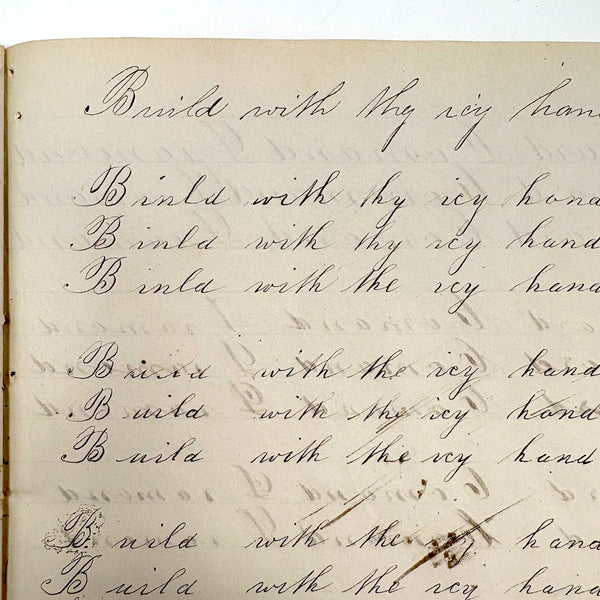 Build with thy icy han
Build with thy icy hand
Build with thy icy hand
Build with the icy hand
Build with the icy hand
Build with the icy hand
Build with the icy hand
Build with the hand
Build with the icy hand